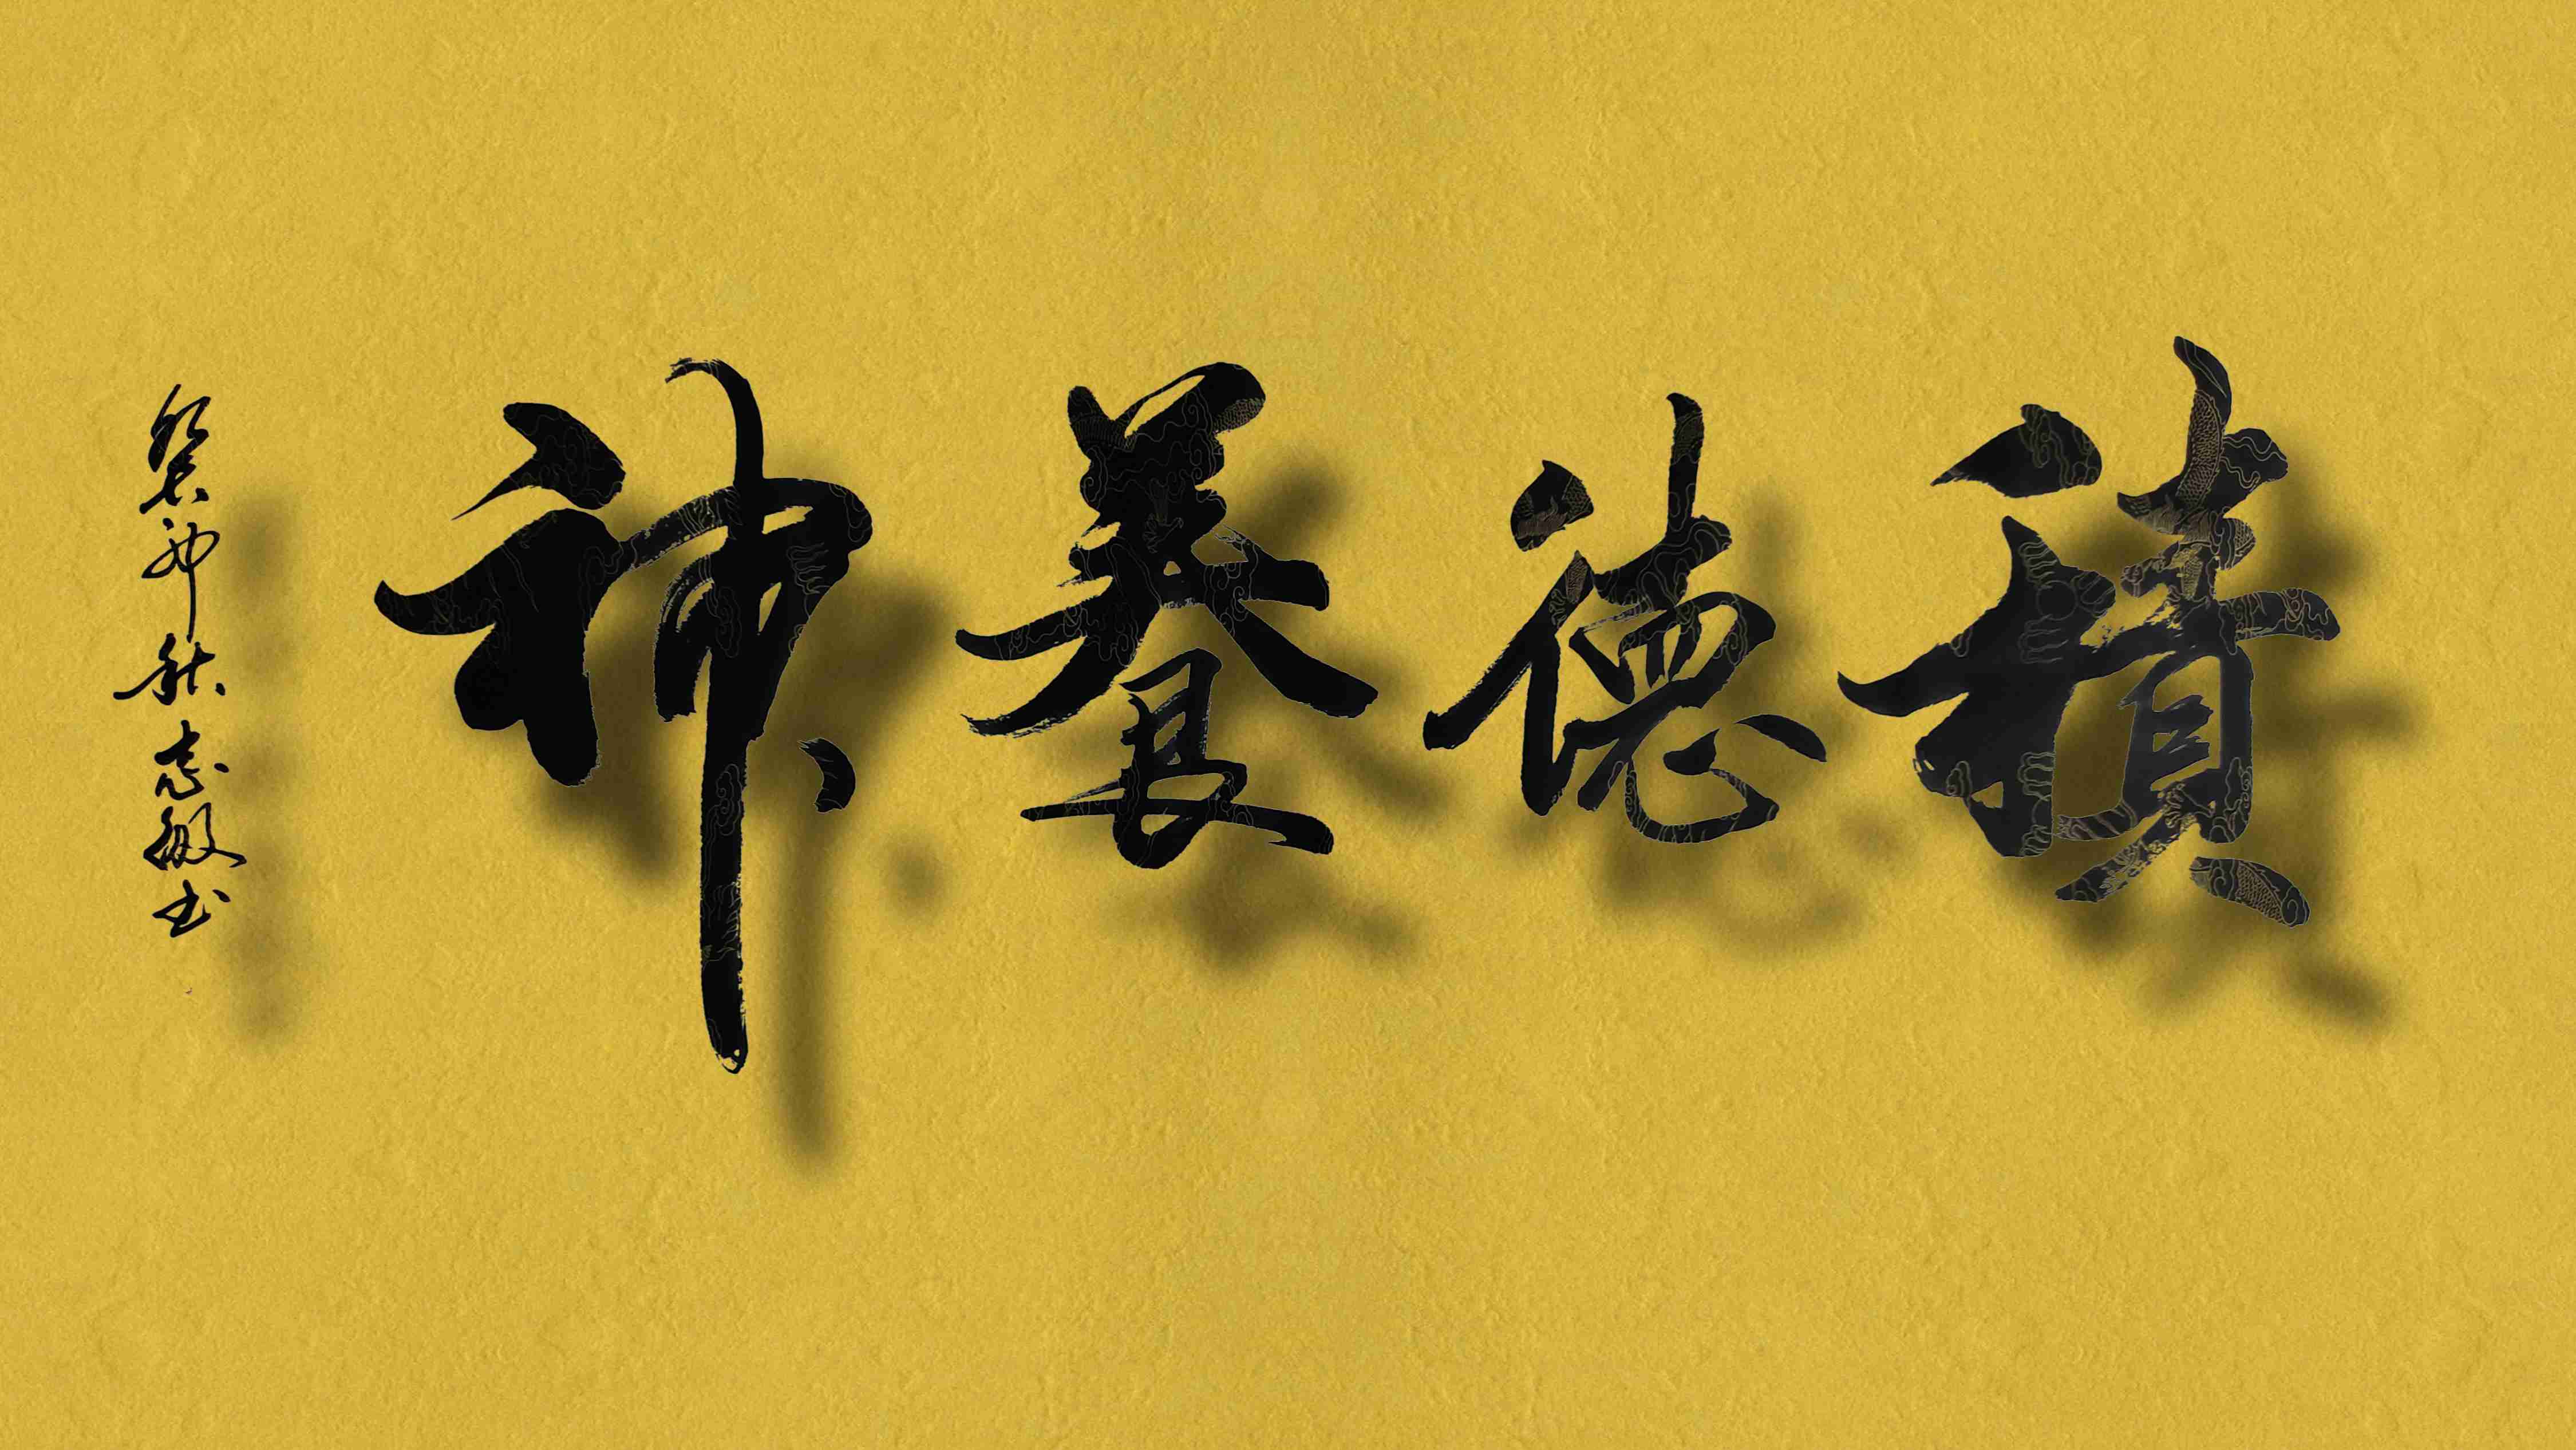 積德養神
癸卯秋志敏书